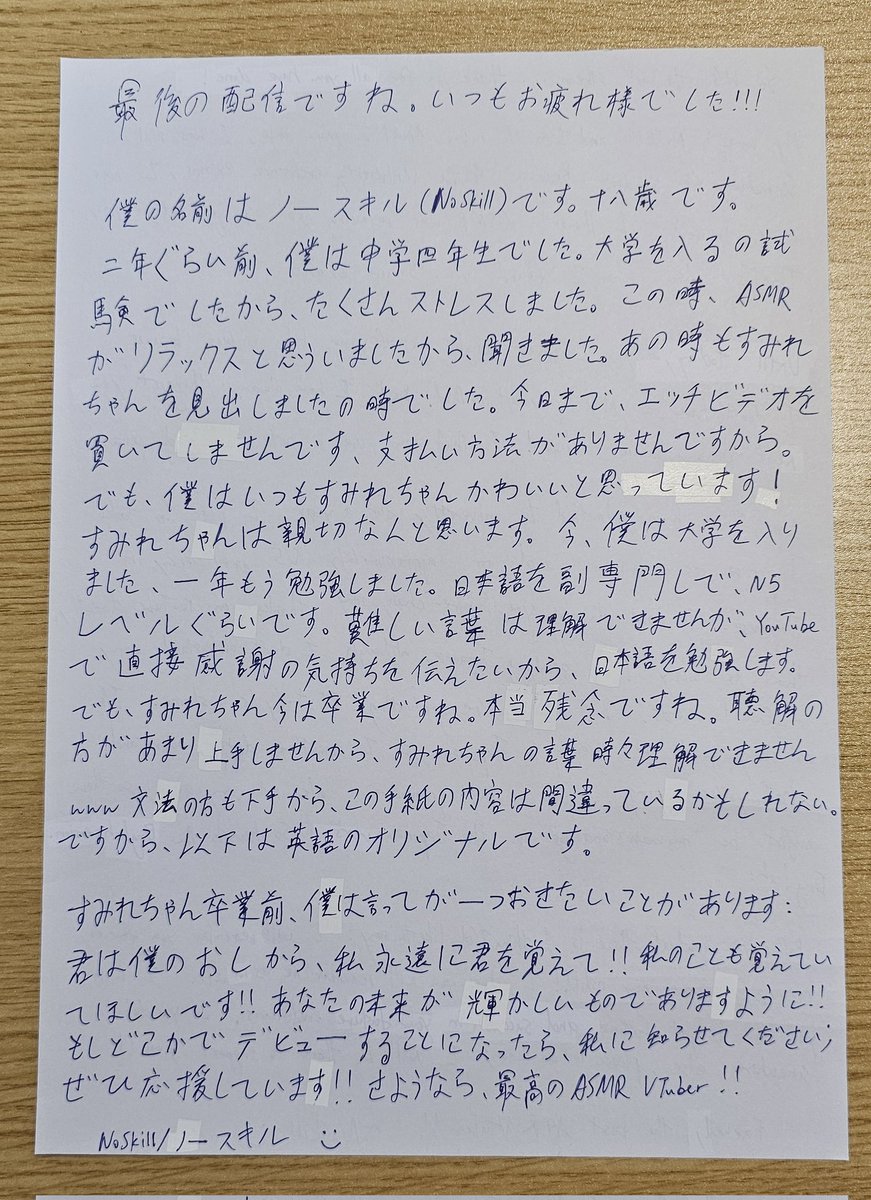 最後の配信ですね。いつもお疲れ様でした!!!
僕の名前はノースキル(NoSkill)です。十八歳です。
二年ぐらい前、僕は中学四年生でした。大学を入るの試
験でしたから、たくさんストレスしました。この時、ASMR
がリラックスと思ういましたから、聞きました。あの時もすみれ
ちゃんを見出しましたの時でした。今日まで、エッチビデオを
買いてしませんです、支払い方法がありませんですから。
でも、僕はいつもすみれちゃんかわいいと思っています!
すみれちゃんは親切なんと思います。今、僕は大学を入り
ました、一年もう勉強しました。日本語を副専門しで、N5
レベルぐらいです。難しい言葉は理解できませんが、YouTube
で直接感謝の気持ちを伝えたいから、日本語を勉強します。
でも、すみれちゃん今は卒業ですね。本当残念ですね。聴解の
方があまり上手しませんから、すみれちゃんの言葉時々理解できません
www 文法の方も下手から、この手紙の内容は間違っているかもしれない。
ですから、以下は英語のオリジナルです。
すみれちゃん卒業前、僕は言ってが一つおきたいことがあります:
君は僕のおしから、私永遠に君を覚えて!!私のことも覚えてい
てほしいです!!あなたの未来が輝かしいものでありますように!!
もしどこかでデビューすることになったら、私に知らせてください;
ぜひ応援しています!!さようなら、最高のASMR VTuber!!
NoSkill/ノースキル